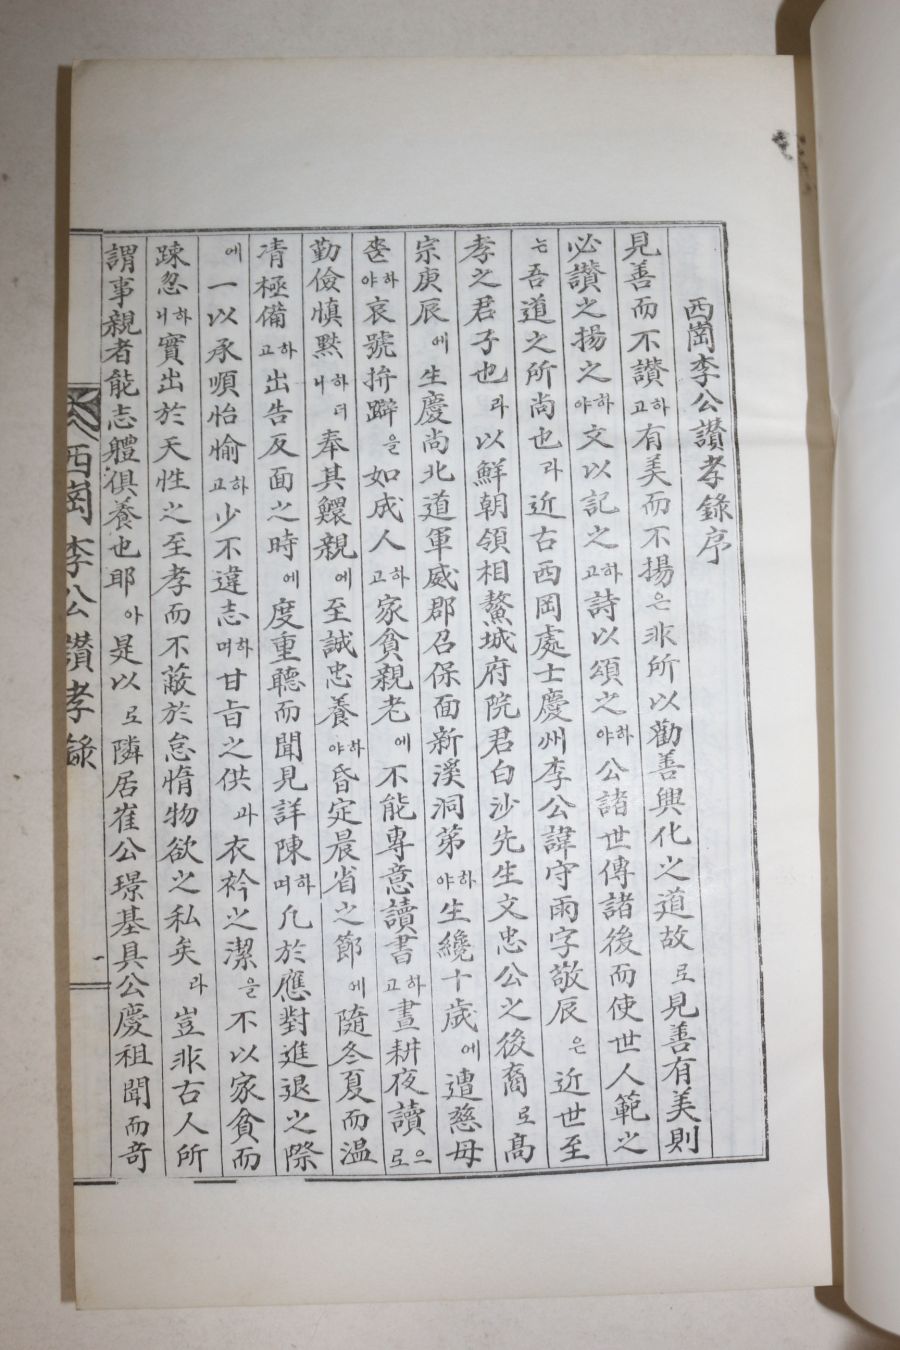 西崗李公讚孝錄序
見善而不讚하고有美而不揚은非所以勸善興化之道故로見善有美則
必讚之揚之하야文以記之하고詩以頌之하야公諸世傳諸後而使世人範之
는吾道之所尚也라近古西岡處士慶州李公諱守雨字敬辰은近世至
孝之君子也라以鮮朝領相鰲城府院君白沙先生文忠公之後裔로高
宗庚辰에生慶尚北道軍威郡召保面新溪洞第하야生纔十歲에遭慈母
喪하야哀號拚躃을如成人하고家貧親老에不能專意讀書하고晝耕夜讀으로
勤儉愼默하더니奉其鰥親에至誠忠養하야昏定晨省之節에隨冬夏而溫
凊極備하고出告反面之時에度重聽而聞見詳陳하며凡於應對進退之際
에一以承順怡愉하고少不違志하며甘旨之供과衣衿之潔을不以家貧而
踈忽하니實出於天性之至孝而不蔽於怠惰物欲之私矣라豈非古人所
謂事親者能志體俱養也耶아是以로隣居崔公璟基具公慶祖聞而奇
西崗李公讚孝錄
一